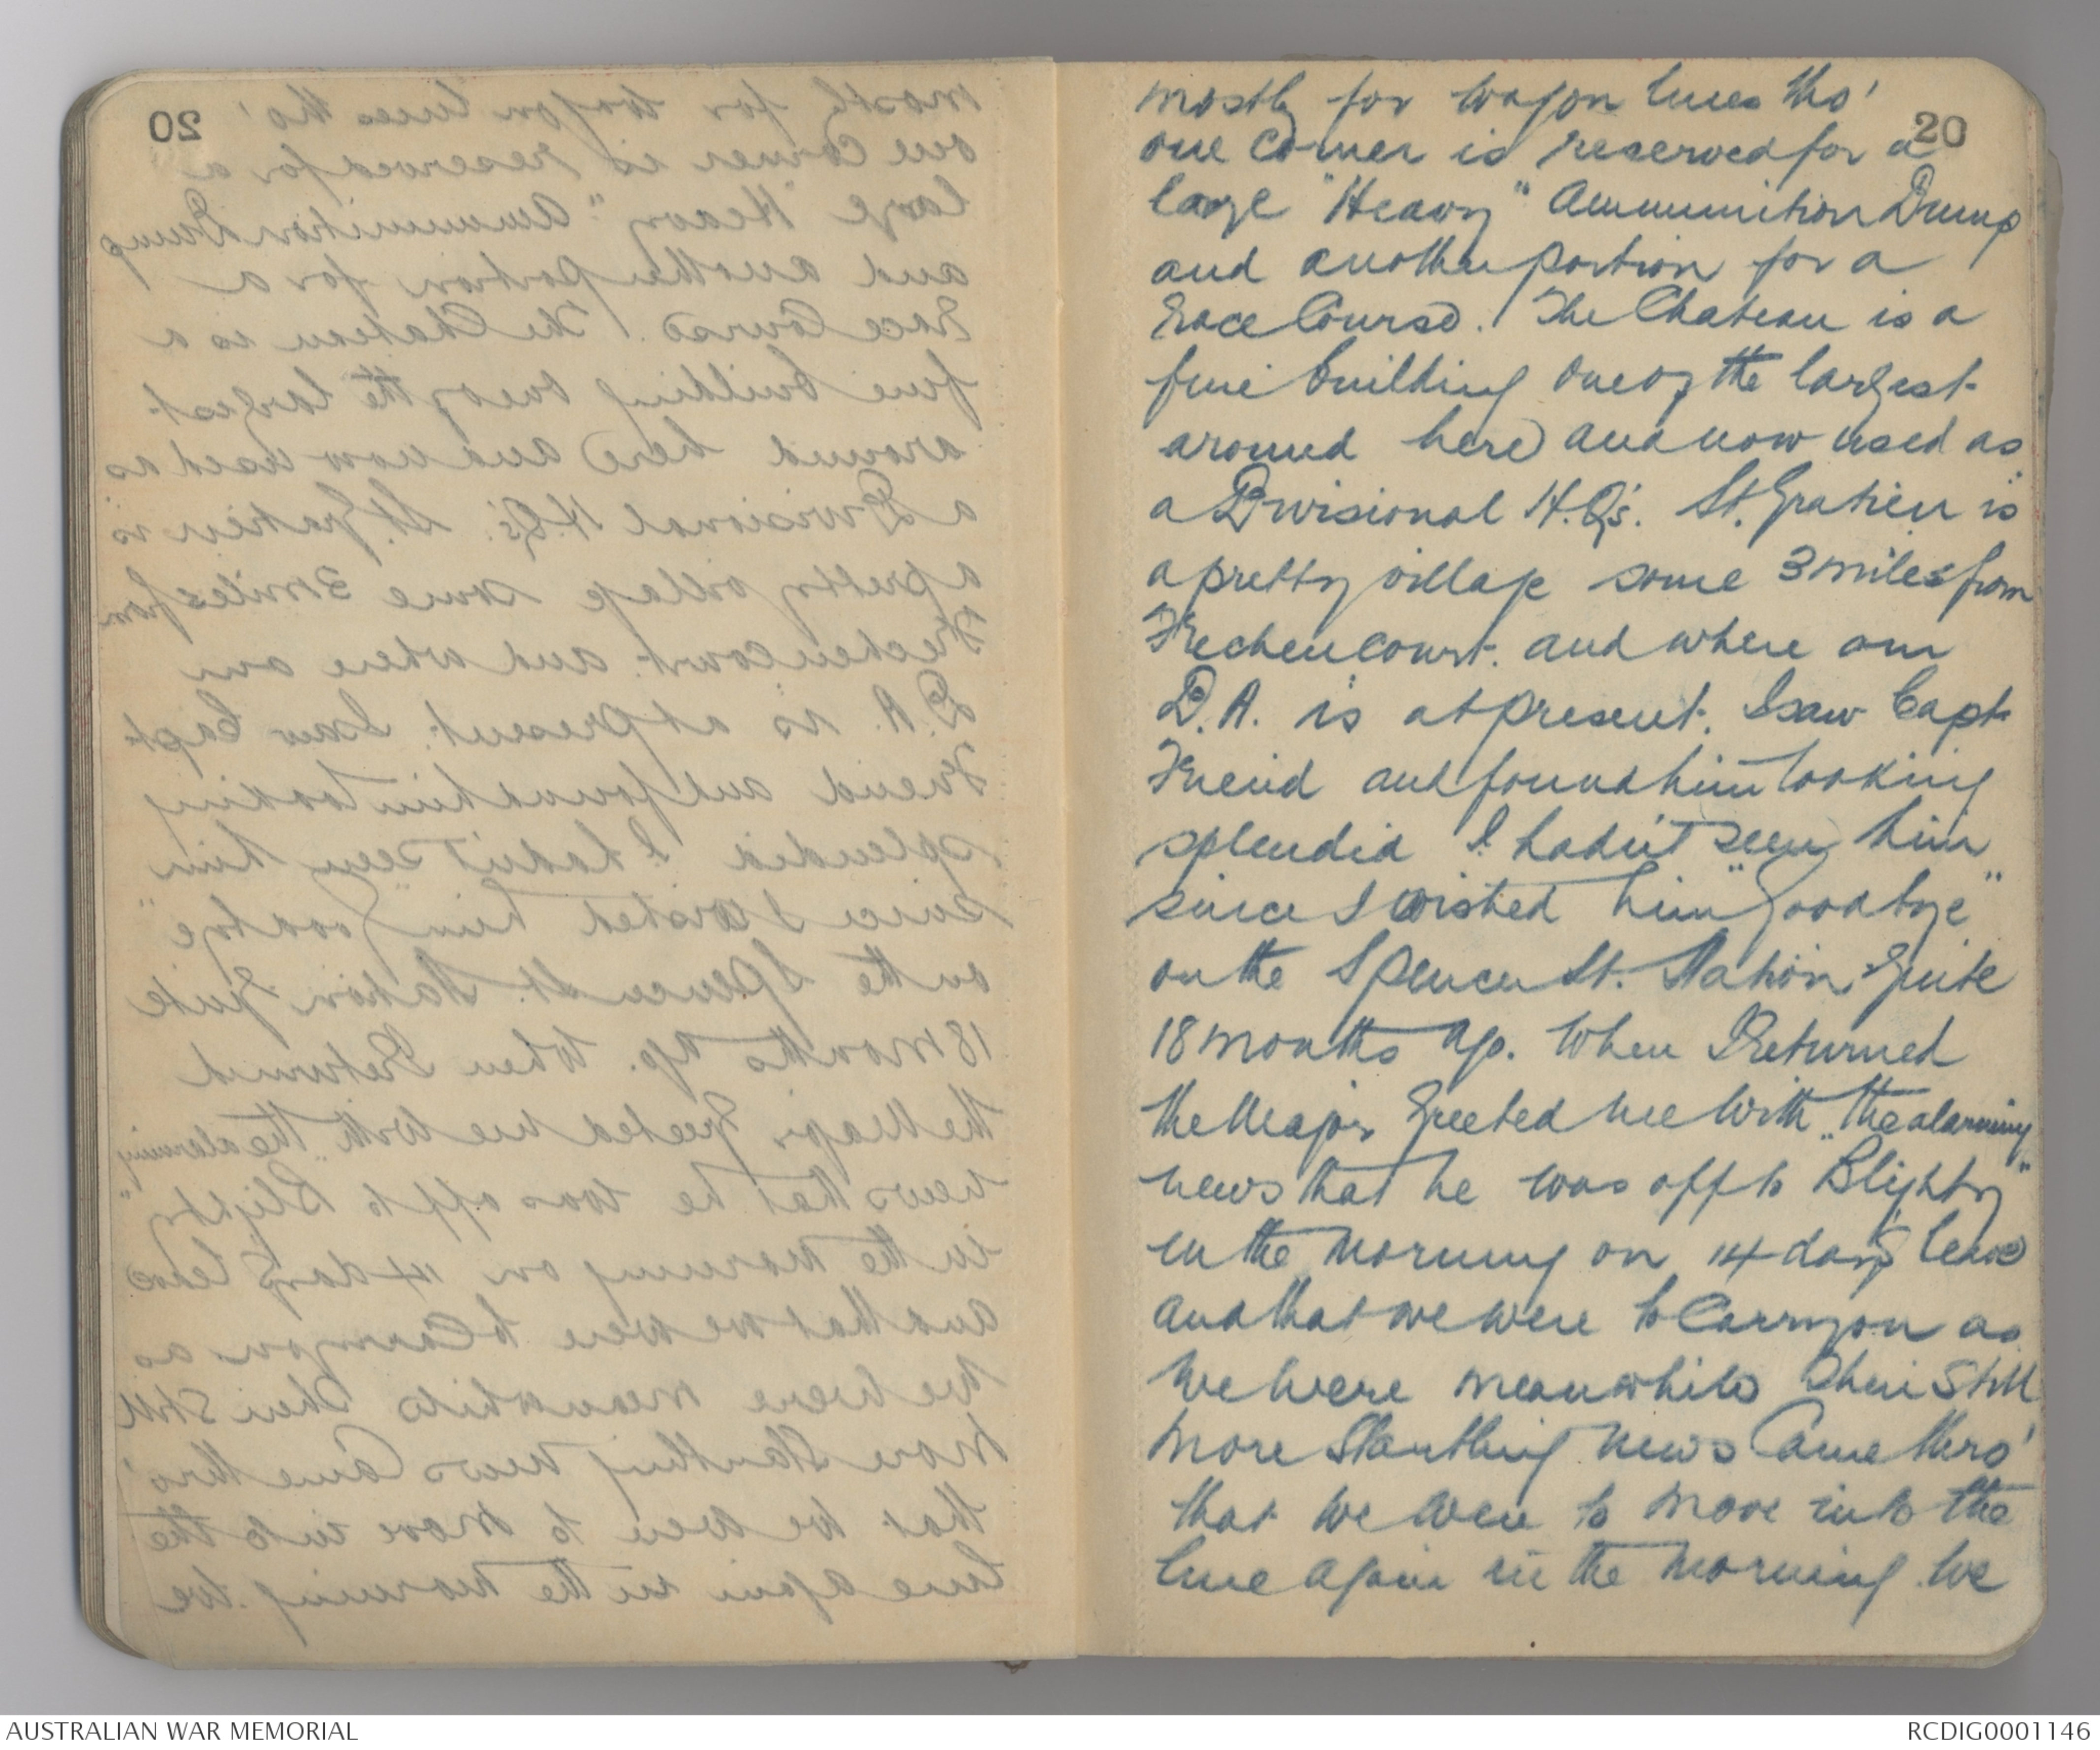 20
mostly for wagon lines tho'
one corner is reserved for a
large "Heavy" Ammunition Dump
and another portion for a
Race Course. The Chateau is a
fine building one of the largest
around here and now used as
a Divisional H.Q's. St. Gratien is
a pretty village some 3 miles from
Frechencourt. and where our
D.A. is at present. I saw Capt
Friend and found him looking
splendid I hadn't seen him
since I wished him "Goodbye"
on the Spencer St. Station quite
18 months ago. When I returned
the Major greeted me with "the alarming
news that he was off to Blighty"
in the morning on 14 days leave
and that we were to carry on as
we were meanwhile then still
more startling news came thro'
that we were to move into the
line again in the morning. We
AUSTRALIAN WAR MEMORIAL
RCDIG0001146